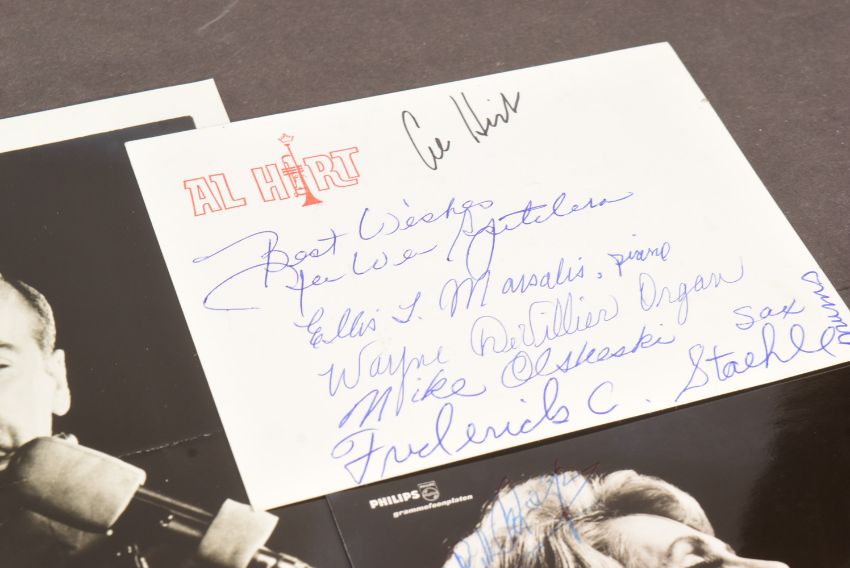 Al Hirt
AL HIRT
Best Wishes
Ellis L. Marsalis, piano
Wayne DeVillier Organ
Mike Olsheski sax
Frederick C. Staehle Drums
PHILIPS
grammofoonplaten